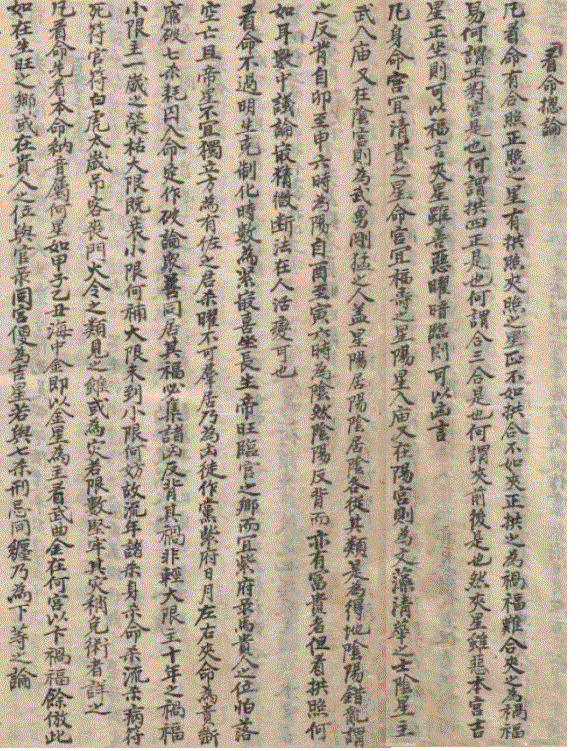 看命總論
凡看命有合照正照之星有拱照夾照之星正不如拱合不如夾正拱之為禍福難合夾之為禍福
易何謂正對宮是也何謂拱四正是也何謂合三合是也何謂夾前後是也然夾星雖照本宮吉
星正坐則可以福言夾星雖善惡曜暗照則可以凶言
凡身命宮宜清貴之星命宮宜福壽之星陽星入庙又在陽宮則為文藻清華之士陰星主
武入庙又在陰宮則為武勇剛猛之人盖星陽居陽陰居陰各從其類是為得地陰陽錯亂謂
之反背自卯至申六時為陽自酉至寅六時為陰然陰陽反背而亦有富貴者但看拱照何
如耳數中議論最精微断法在人活變可也
看命不过明生克制化時數為紧最喜坐長生帝旺臨官之鄉而宜紫府彔馬貴人之位怕落
空亡且帝星不宜獨立方為有佐之君杀曜不可羣居乃為凶徒作黨紫府日月左右夾命為貴斷
廉破七杀耗囚入命定作破論衆善同居其福必集諸凶反背其禍非輕大限主十年之禍福
小限主一歲之榮枯大限既衰小限何補大限未到小限何妨故流年諸杀身杀命杀流杀病符
死符官符白虎太歲吊客丧門火令之類見之雖或為灾者限數堅牢其灾稍免術者詳之
凡看命先看本命納音属何星如甲子乙丑海中金即以金星為主看武曲金在何宮以下禍福餘倣此
如在生旺之鄉或在貴人之位與官彔同宮便為吉星若與七杀刑忌同纏乃為下等之論